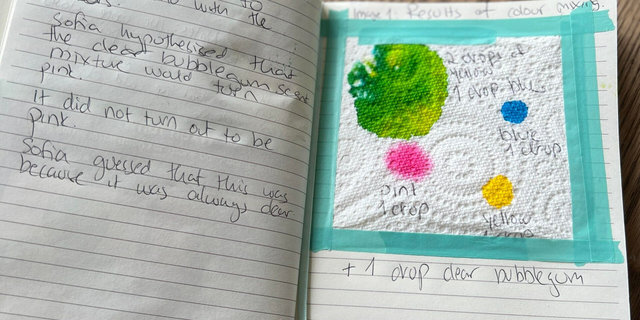 with the
Sofia hypothesised that
the clear bubblegum scent
mixture would turn
pink.
It did not turn out to be
pink.
Sofia guessed that this was
because it was always clear
Image 1: Results of colour mixing.
2 drops of
yellow
1 drop blue
blue
1 drop
pink
1 drop
yellow
+ 1 drop clear bubblegum